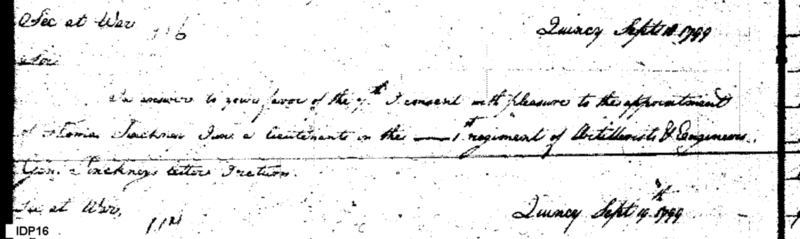 Sec at War 116 Quincy Sept 18. 1799
Sir
In answer to your favor of the 7th I consent with pleasure to the appointment
of Thomas Pinckney Jun. a lieutenants in the 1st regiment of Artillerists & Engineers.
Gen. Pinckneys letters I return.
Sec at War, Quincy Sept 19th. 1799
IDP16